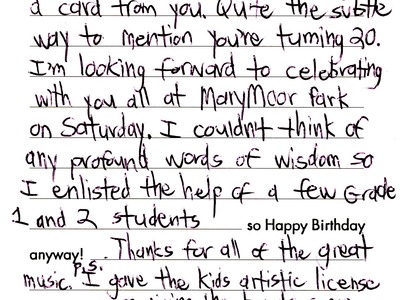 a card from you. Quite the subtle
way to mention you're turning 20.
I'm looking forward to celebrating
with you all at MaryMoor Park
on Saturday. I couldn't think of
any profound words of wisdom so
I enlisted the help of a few Grade
1 and 2 students so Happy Birthday
anyway! . Thanks for all of the great
music. P.S. I gave the kids artistic license